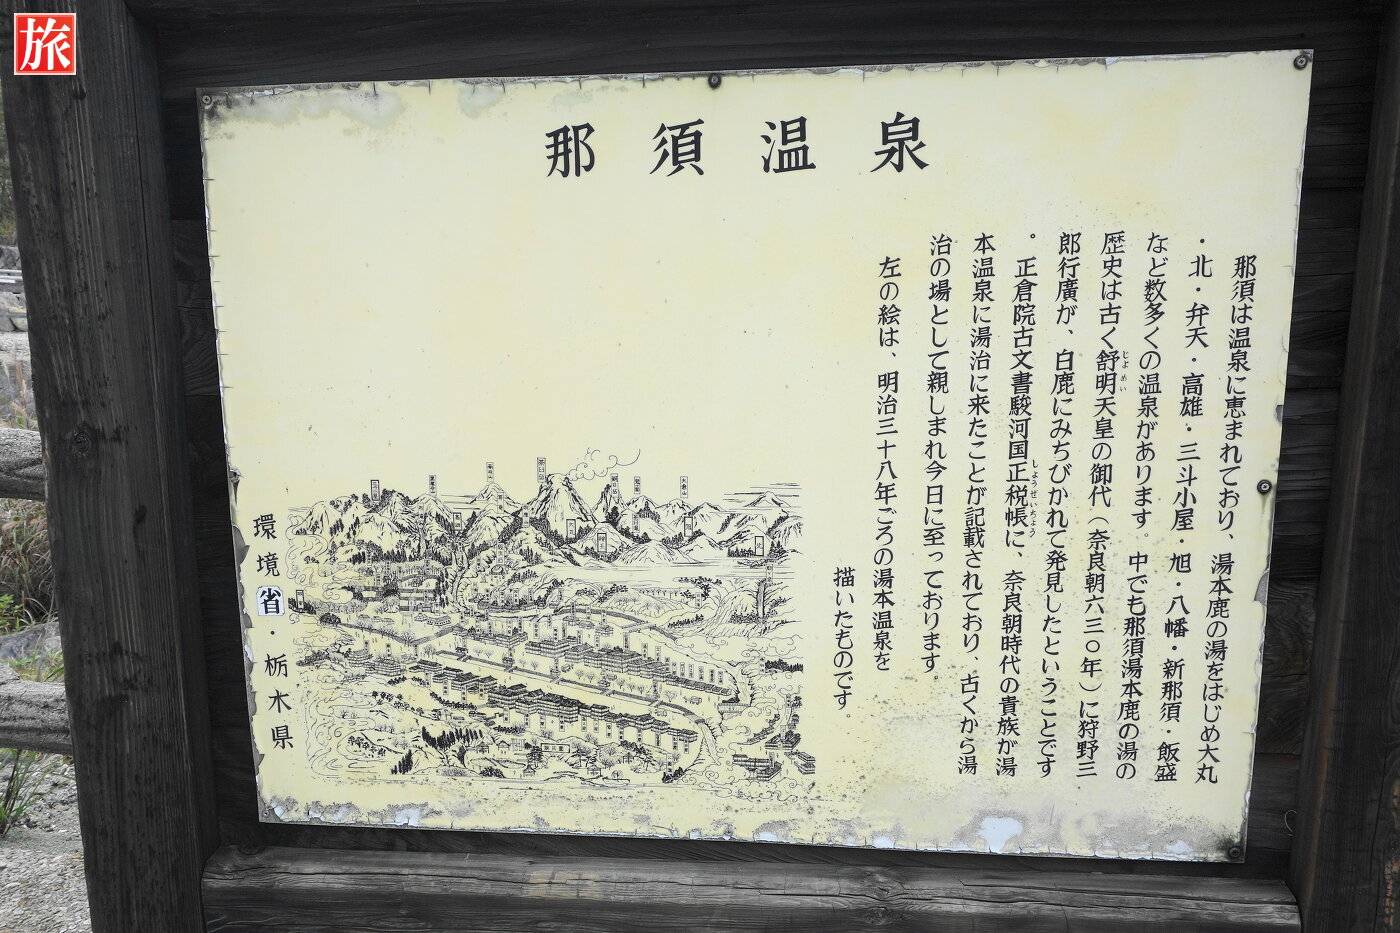 旅
那須温泉
那須は温泉に恵まれており、湯本鹿の湯をはじめ大丸
・北・弁天・高雄・三斗小屋・旭・八幡・新那須・飯盛
など数多くの温泉があります。中でも那須湯本鹿の湯の
歴史は古く舒明天皇の御代（奈良朝六三〇年）に狩野三
じよめい
郎行廣が、白鹿にみちびかれて発見したということです
。正倉院古文書駿河国正税帳に、奈良朝時代の貴族が湯
しようぜいちよう
本温泉に湯治に来たことが記載されており、古くから湯
治の場として親しまれ今日に至っております。
左の絵は、明治三十八年ごろの湯本温泉を
描いたものです。
環境省・栃木県
茶臼岳